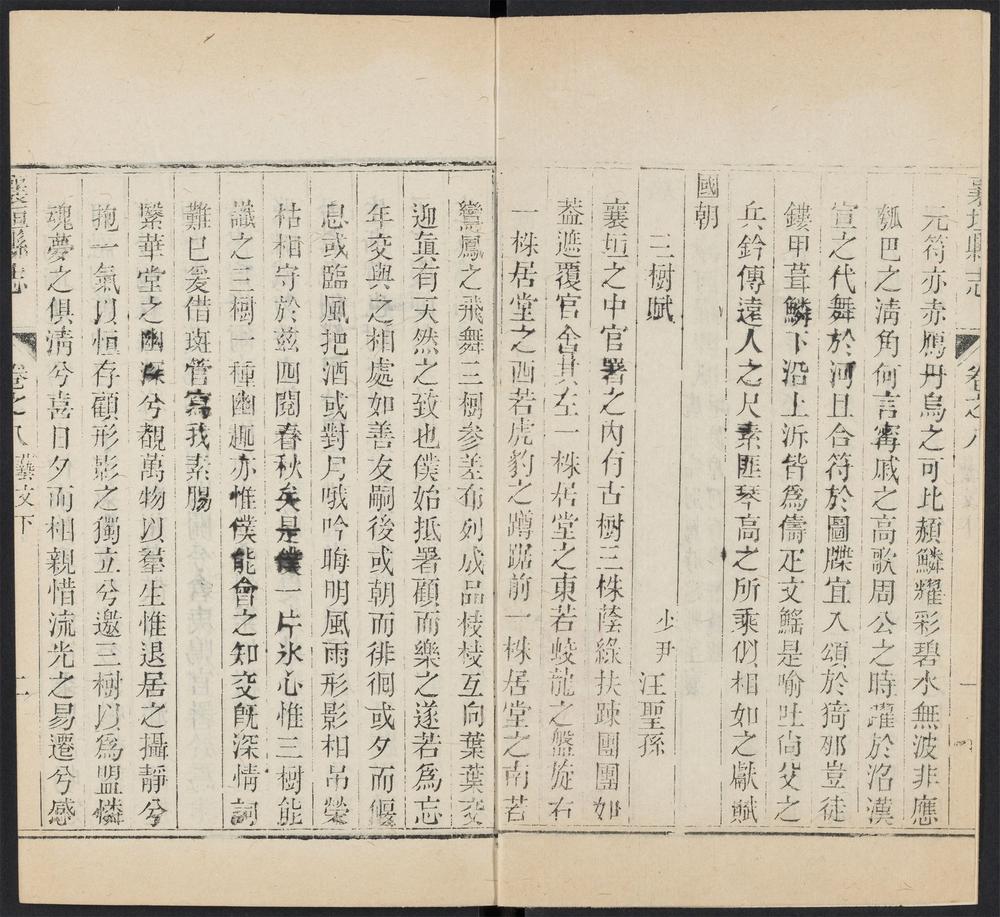 襄垣縣志
卷之八
元符亦赤鴈丹烏之可比頳鱗耀彩碧水無波非應
瓠巴之淸角何言甯戚之高歌周公之時躍於沿漢
宣之代舞於河且合符於圖牒宜入頌於猗那豈徒
鏤甲葺鱗下沿上泝皆爲儔疋文鰩是喻吐尙父之
兵鈐傳遠人之尺素匪琴高之所乘似相如之獻賦
國朝
三樹賦
少尹 汪聖孫
襄垣之中官署之內有古樹三株蔭綠扶踈團團如
葢遮覆官舍其左一株居堂之東若蛟龍之盤旋右
一株居堂之西若虎豹之蹲踞前一株居堂之南若
鸞鳳之飛舞三樹參差布列成品枝枝互向葉葉交
迎眞有天然之致也僕始抵署顧而樂之遂若爲忘
年交與之相處如善友嗣後或朝而徘徊或夕而偃
息或臨風把酒或對月哦吟晦明風雨形影相吊榮
枯相守於茲四閱春秋矣是僕一片氷心惟三樹能
識之三樹一種幽趣亦惟僕能會之知交旣深情詞
難已爰借斑管寫我素腸
繄華堂之幽深兮覩萬物以羣生惟退居之攝靜兮
抱一氣以恒存顧形影之獨立兮邀三樹以爲盟憐
魂夢之俱淸兮喜日夕而相親惜流光之易遷兮感
襄垣縣志
卷之八 藝文下
二